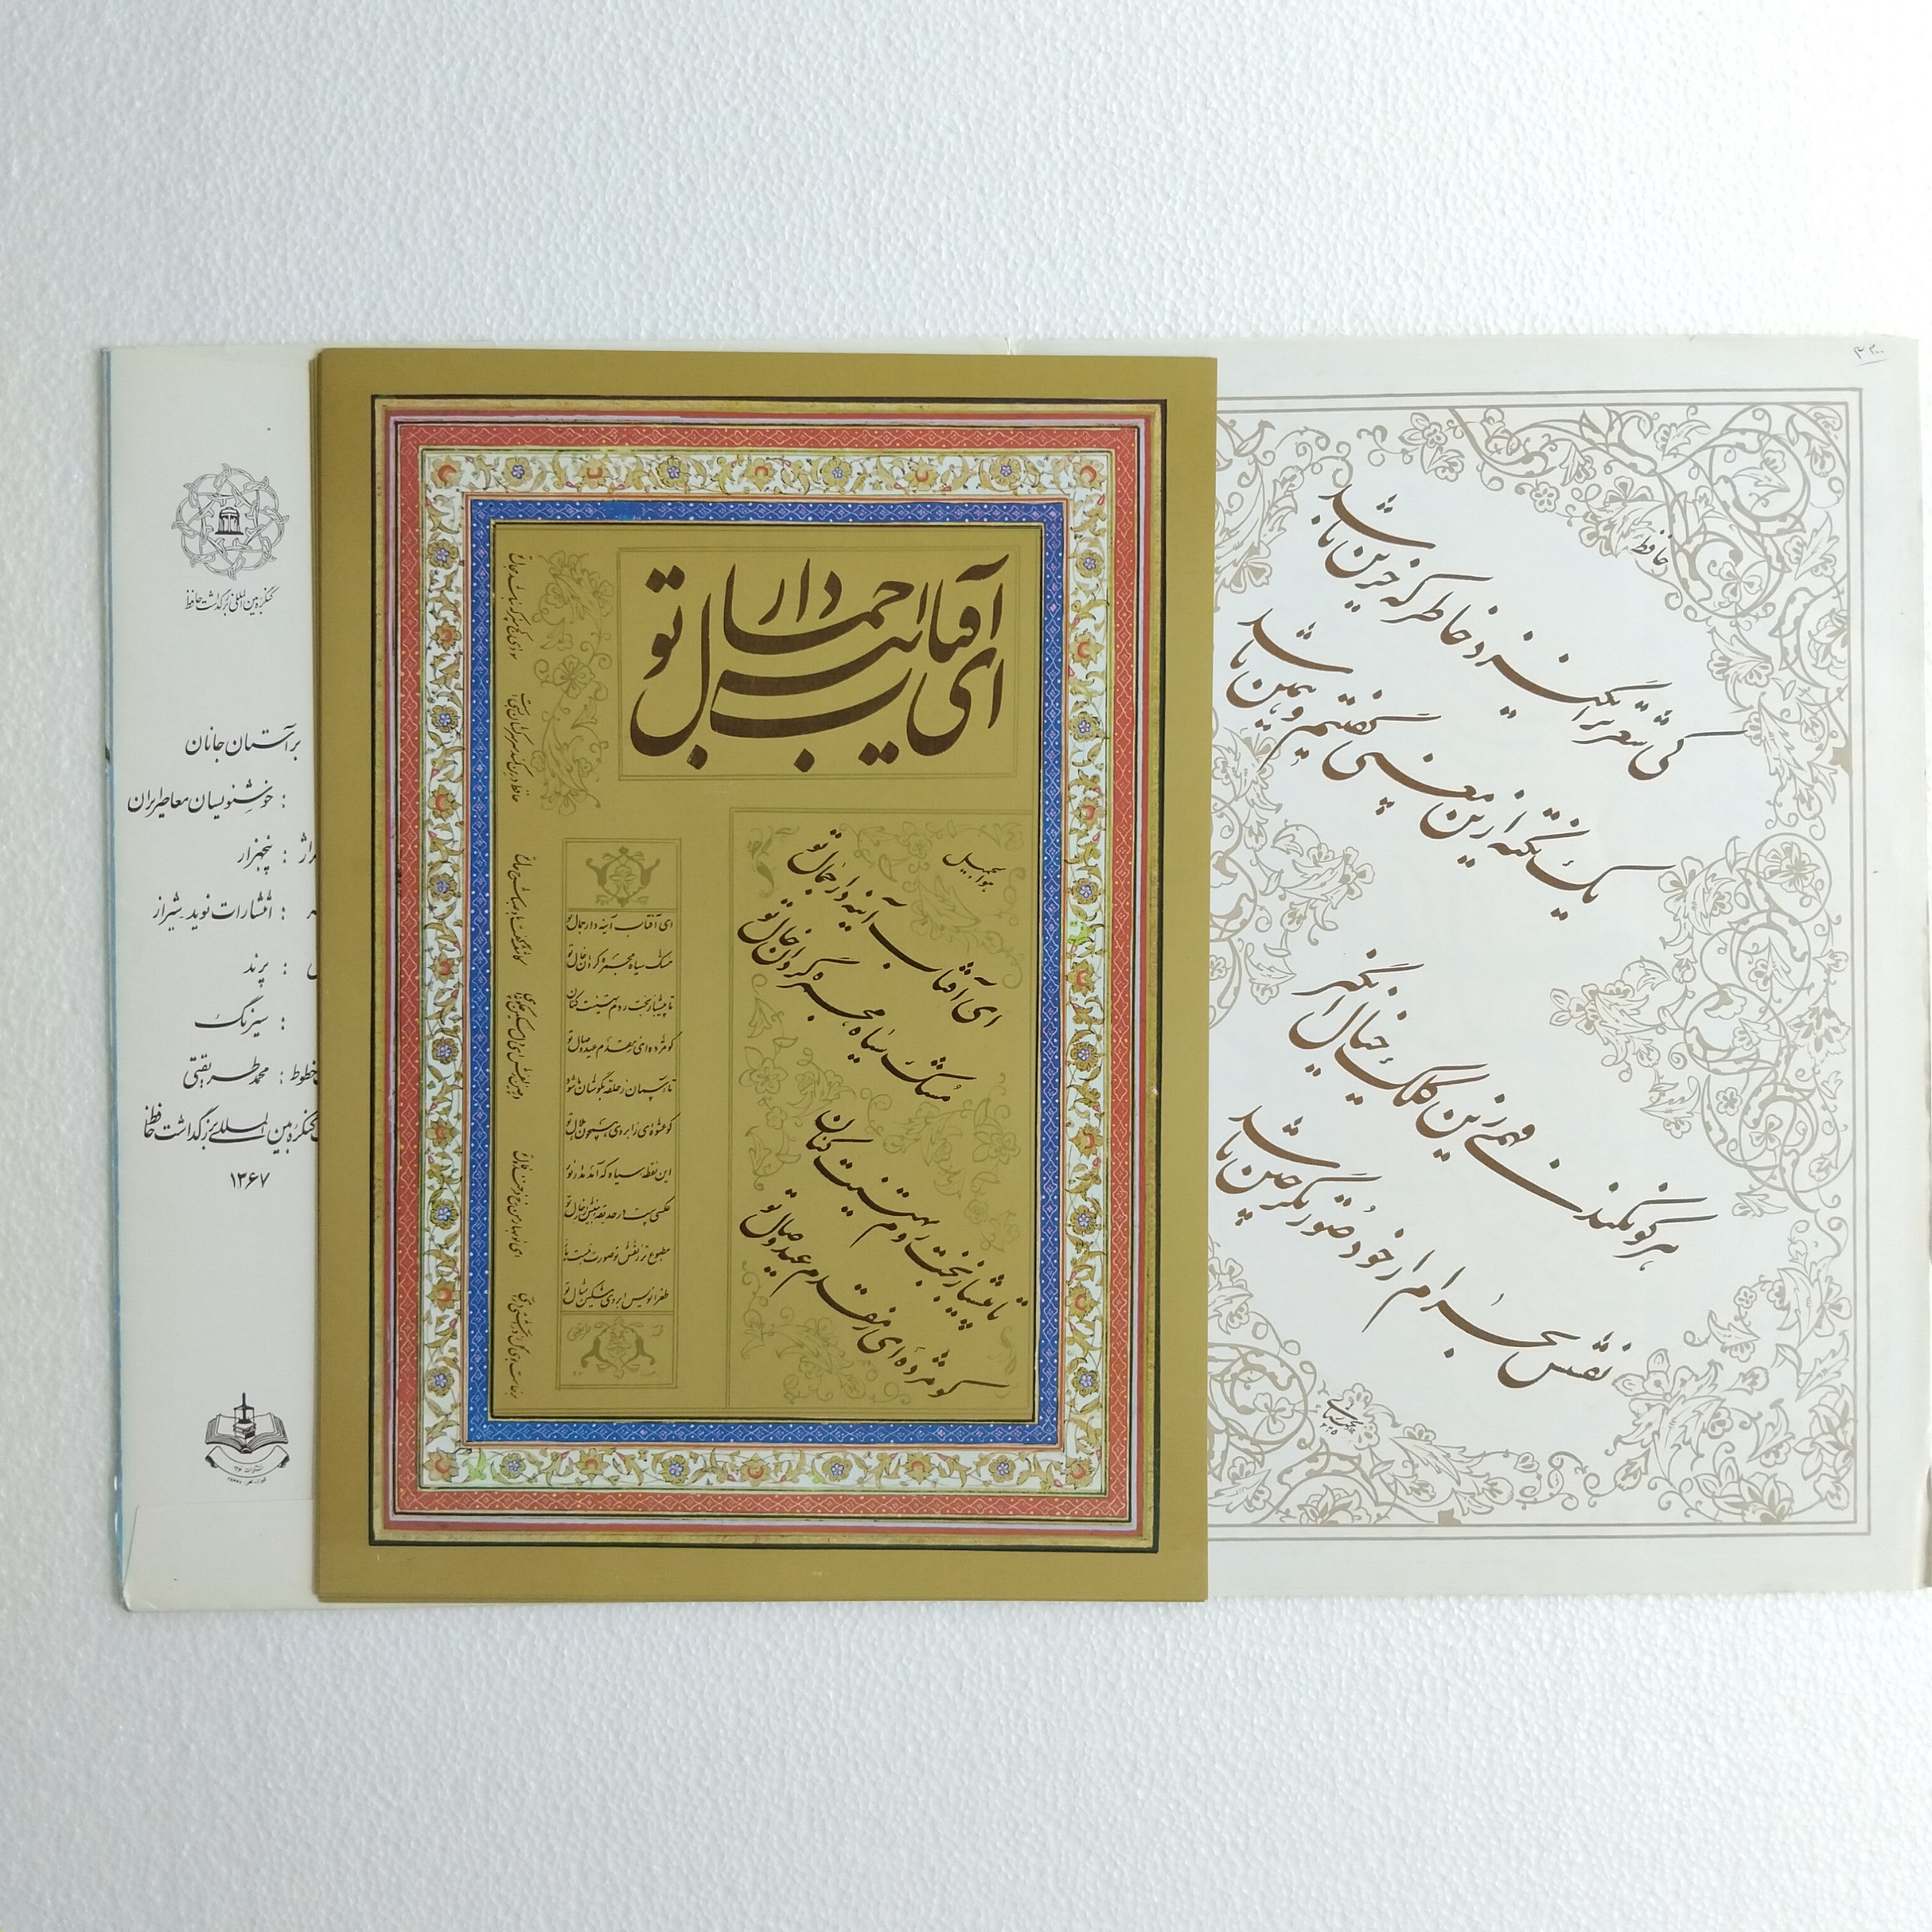 ۳۲۰۰
حافظ
کی شعر تر انگیزد خاطر که حزین باشد
یک نکته ازین معنی گفتیم و همین باشد
هر کو نکند فهمی زین کلک خیال انگیز
نقشش بحرام ار خود صورتگر چین باشد
ای آفتاب آینه دار جمال تو
هوالجمیل
ای آفتاب آینه دار جمال تو
مشک سیاه مجمره گردان خال تو
تا پیش بخت باز روم تهنیت کنان
کو مژده ای ز مقدم عید وصال تو
ای آفتاب آینه دار جمال تو
مشک سیاه مجمره گردان خال تو
تا پیش بخت باز روم تهنیت کنان
کو مژده ای ز مقدم عید وصال تو
تا آسمان ز حلقه بگوشان ما شود
کو عشوه ای ز ابروی همچون هلال تو
این نقطه سیاه که آمد مدار نور
عکسی است در حدیقه بینش ز خال تو
مطبوع تر ز نقش تو صورت نبست باز
طغرا نویس ابروی مشکین مثال تو
کنگره بین المللی بزرگداشت حافظ
بر آستان جانان
: خوشنویسان معاصر ایران
: پنجهزار
: انتشارات نوید شیراز
: پرند
: سیزنگ
خطوط : محمد طریقتی
کنگره بین المللی بزرگداشت حافظ
۱۳۶۷